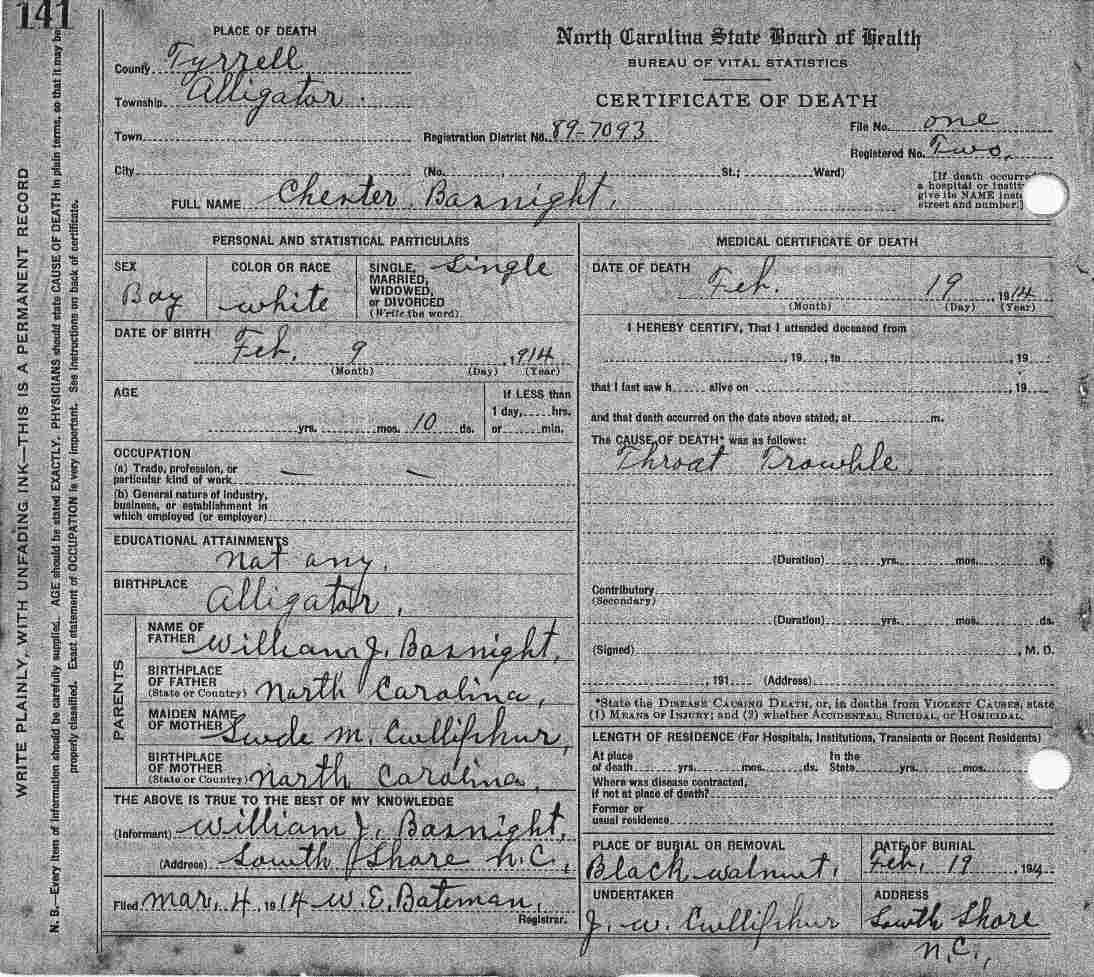 141
WRITE PLAINLY, WITH UNFADING INK—THIS IS A PERMANENT RECORD
N. B.—Every item of information should be carefully supplied. AGE should be stated EXACTLY. PHYSICIANS should state CAUSE OF DEATH in plain terms, so that it may be
properly classified. Exact statement of OCCUPATION is very important. See instructions on back of certificate.
PLACE OF DEATH
County Tyrrell
Township Alligator.
Town
City
North Carolina State Board of Health
BUREAU OF VITAL STATISTICS
CERTIFICATE OF DEATH
Registration District No. 89-7093
File No. one
Registered No. Two.
(No. , St.; Ward)
[If death occurred
a hospital or instit
give its NAME inste
street and number.]
FULL NAME Chester Basnight.
PERSONAL AND STATISTICAL PARTICULARS
SEX
Boy
COLOR OR RACE
white
SINGLE, Single
MARRIED,
WIDOWED,
or DIVORCED
(Write the word)
DATE OF BIRTH
Feb. 9, 1914
(Month) (Day) (Year)
AGE
yrs. mos. 10 ds.
If LESS than
1 day, hrs.
or min.
OCCUPATION
(a) Trade, profession, or
particular kind of work — —
(b) General nature of industry,
business, or establishment in
which employed (or employer)
EDUCATIONAL ATTAINMENTS
Not any.
BIRTHPLACE
Alligator.
PARENTS
NAME OF
FATHER William J. Basnight,
BIRTHPLACE
OF FATHER
(State or Country) North Carolina,
MAIDEN NAME
OF MOTHER M. Cullipher,
BIRTHPLACE
OF MOTHER
(State or Country) North Carolina,
THE ABOVE IS TRUE TO THE BEST OF MY KNOWLEDGE
(Informant) William J. Basnight,
(Address) South Shore N.C.,
Filed Mar, 4, 1914 W. E. Bateman,
Registrar.
MEDICAL CERTIFICATE OF DEATH
DATE OF DEATH
Feb. 19, 1914
(Month) (Day) (Year)
I HEREBY CERTIFY, That I attended deceased from
, 19 , to , 19
that I last saw h alive on , 19
and that death occurred on the date above stated, at m.
The CAUSE OF DEATH* was as follows:
Throat Trowble
(Duration) yrs. mos. ds.
Contributory
(Secondary)
(Duration) yrs. mos. ds.
(Signed) , M. D.
, 191 (Address)
*State the DISEASE CAUSING DEATH, or, in deaths from VIOLENT CAUSES, state
(1) MEANS OF INJURY; and (2) whether ACCIDENTAL, SUICIDAL, or HOMICIDAL.
LENGTH OF RESIDENCE (For Hospitals, Institutions, Transients or Recent Residents)
At place In the
of death yrs. mos. ds. State yrs. mos.
Where was disease contracted,
if not at place of death?
Former or
usual residence
PLACE OF BURIAL OR REMOVAL
Black walnut.
DATE OF BURIAL
Feb, 19, 1914
UNDERTAKER
J. W. Cullipher
ADDRESS
South Shore
N.C.,